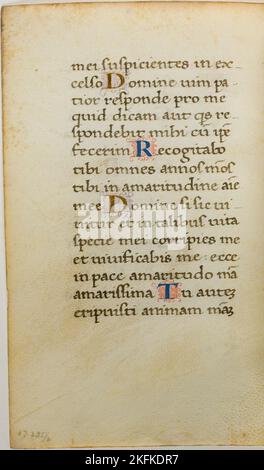 mei suspicientes in ex
celso Domine uim pa
tior responde pro me
quid dicam aut qs re
spondebit mihi cū ipe
fecerim Recogitabo
tibi omnes annos mos
tibi in amaritudine aīe
mee Domine si sic ui
uitur et in talibus uita
spccie mei corripies me
et uiuificabis me : ecce
in pace amaritudo mā
amarissima Tu autez
eripuisti animam maz
alamy
Image ID: 2KFKDR7
www.alamy.com